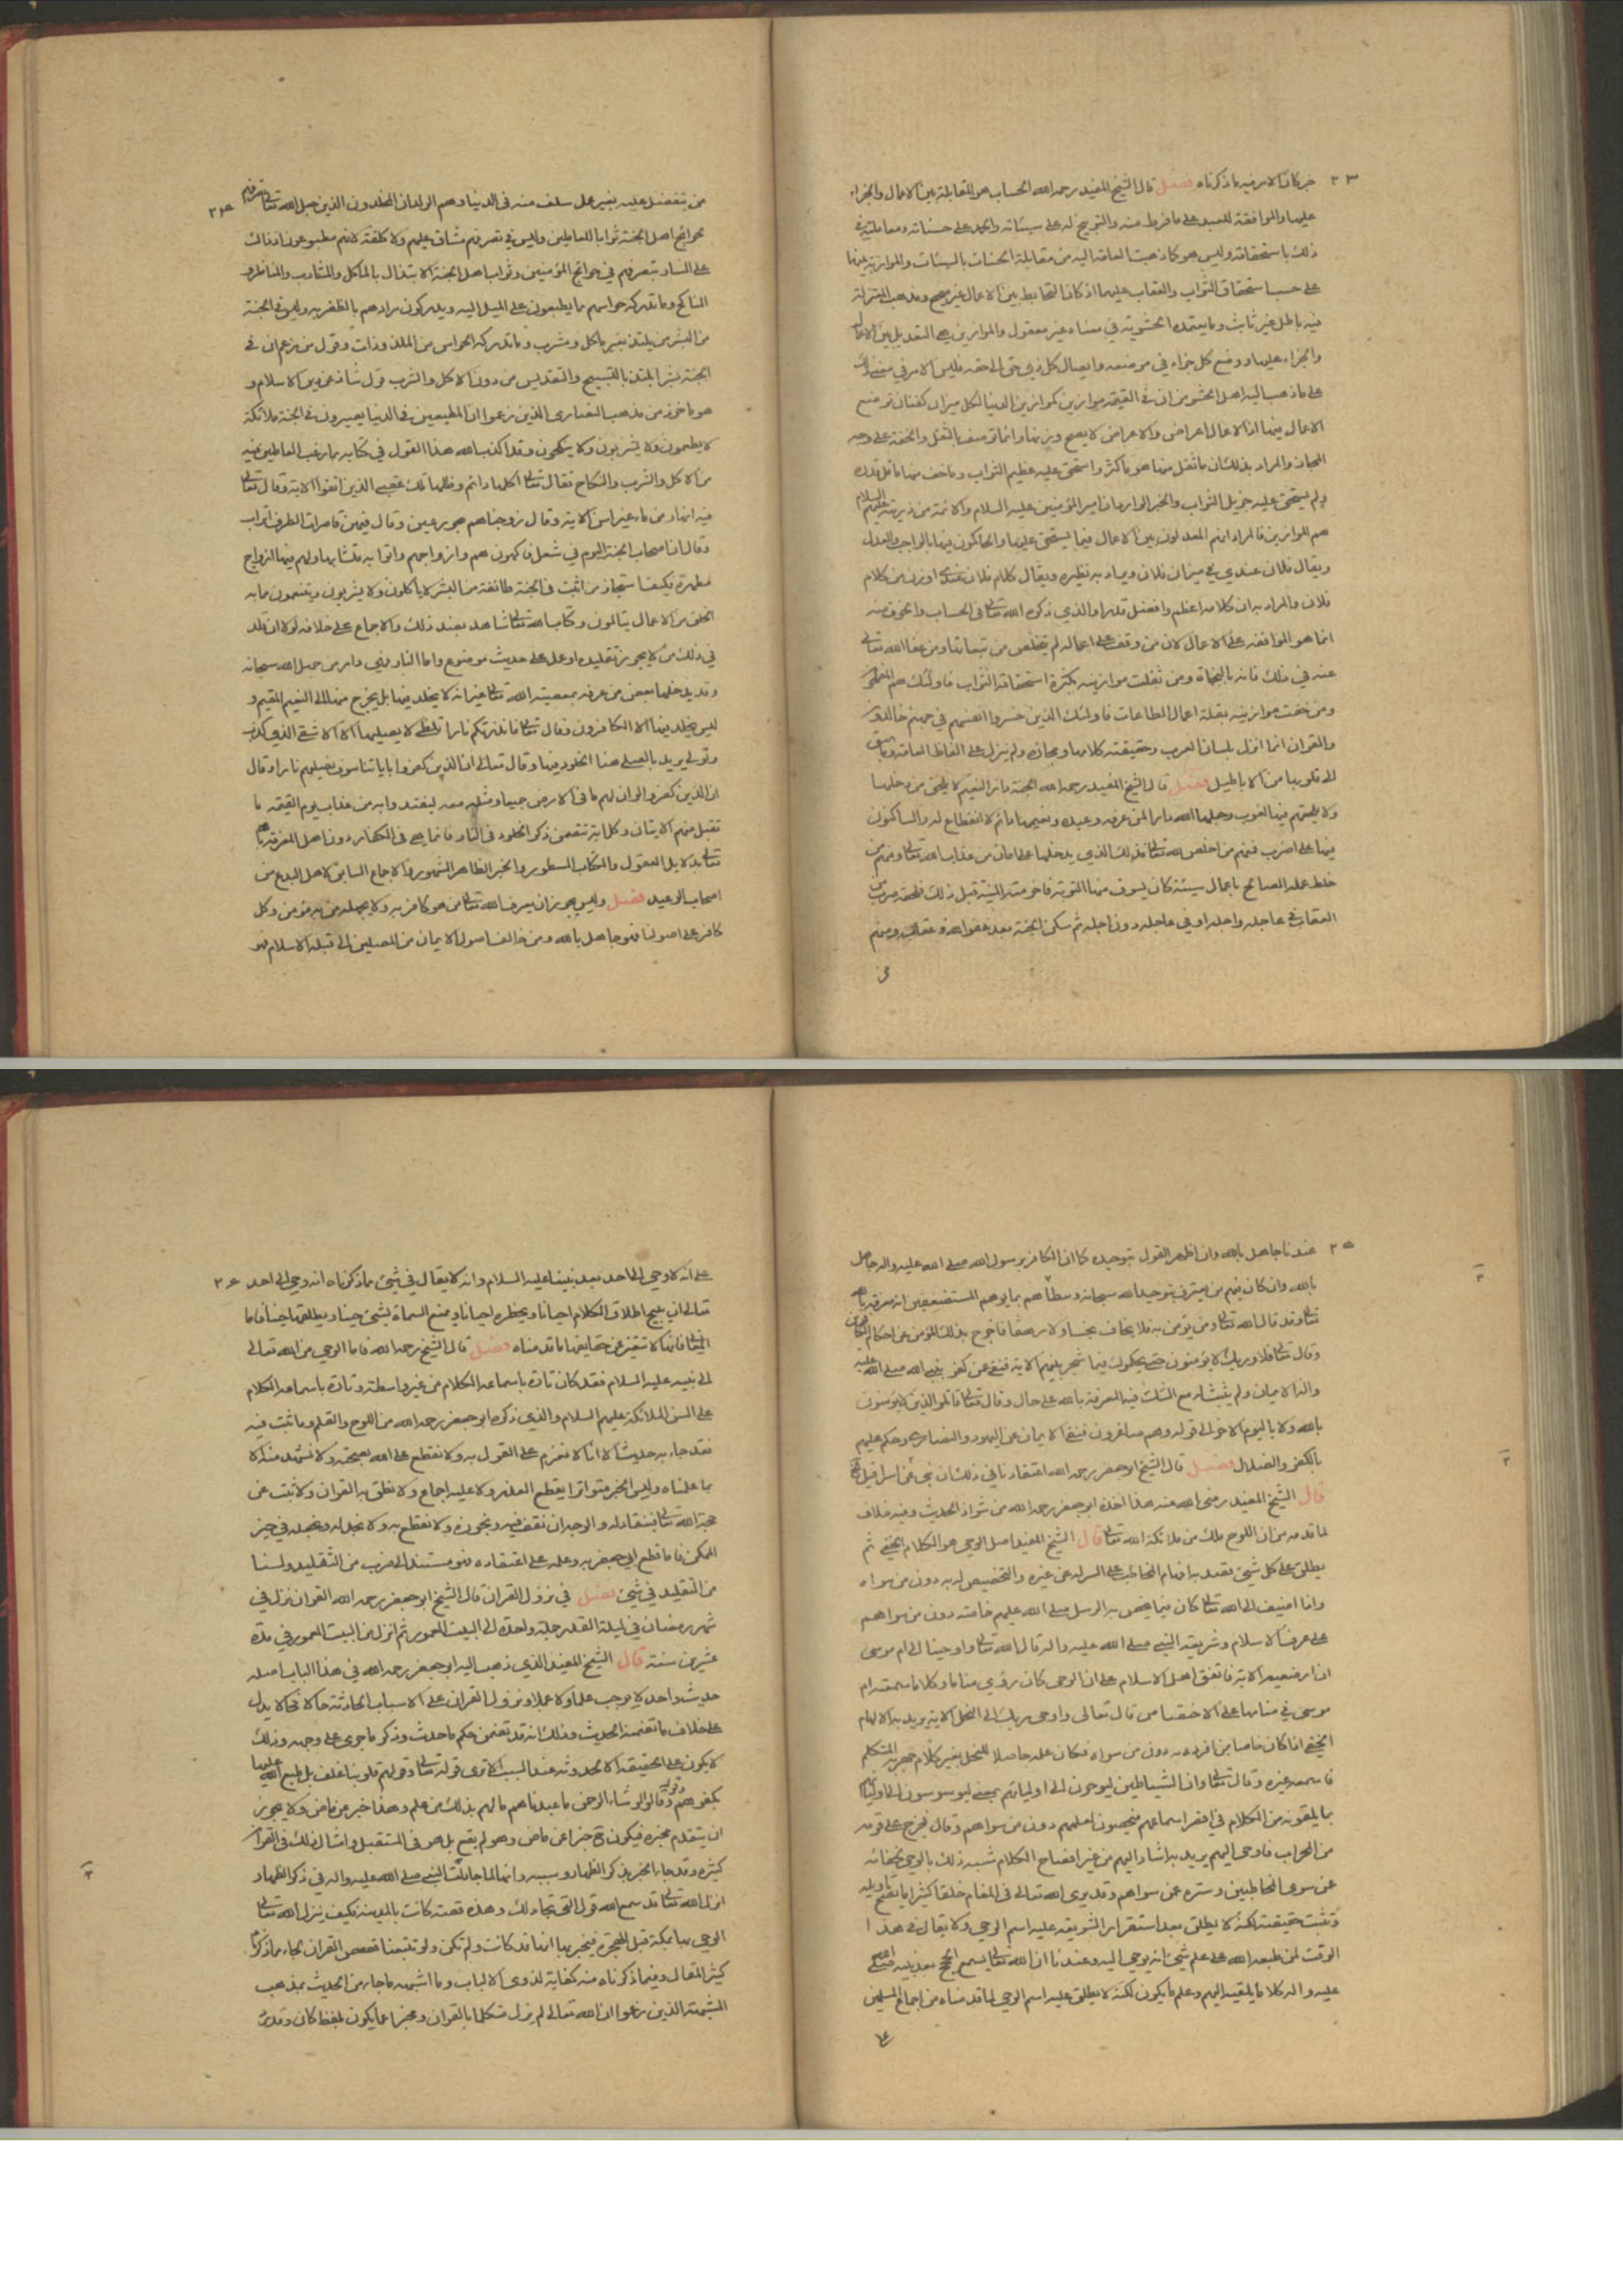 ٢٣
خبر كان الامر فيه ما ذكرناه فصل قال الشيخ المفيد رحمه الله الحساب هو المقابلة بين الاعمال والجزاء
عليها والموافقة للعبد على ما فرط منه والتوبيخ له على سيئاته والحمد على حسناته ومعاملته في
ذلك باستحقاقه وليس هو كما ذهبت العامة اليه من مقابلة الحسنات بالسيئات والموازنة بينهما
على حسب استحقاق الثواب والعقاب عليهما اذ كان التحابط بين الاعمال غير صحيح ومذهب المعتزلة
فيه باطل غير ثابت وما يعتمده الحشوية في معناه غير معقول والموازين هي التعديل بين الاعمال
والجزاء عليها ووضع كل جزاء في موضعه وايصال كل ذي حق الى حقه فليس الامر في معنى ذلك
على ما ذهب اليه اهل الحشو من ان في القيمة موازين كموازين الدنيا لكل ميزان كفتان توضع
الاعمال فيها اذ الاعمال اعراض والاعراض لا يصح وزنها وانما توصف بالثقل والخفة على وجه
المجاز والمراد بذلك ان ما ثقل منها هو ما كثر واستحق عليه عظيم الثواب وما خف منها ما قل قدره
ولم يستحق عليه جزيل الثواب والخبر الوارد ان امير المؤمنين عليه السلام والائمة من ذريته عليهم السلام
هم الموازين فالمراد انهم المعدلون بين الاعمال فيما يستحق عليها والحاكمون فيها بالواجب والعدل
ويقال فلان عندي في ميزان فلان ويراد به نظيره ويقال كلام فلان عندي اوزن من كلام
فلان والمراد به ان كلامه اعظم وافضل قدرا والذي ذكره الله تعالى في الحساب والخوف منه
انما هو الموافقة على الاعمال لان من وقف على اعماله لم يتخلص من تبعاتها ومن عفا الله تعالى
عنه في ذلك فانه بالنجاة ومن ثقلت موازينه بكثرة استحقاقه الثواب فاولئك هم المفلحون
ومن خفت موازينه بقلة اعمال الطاعات فاولئك الذين خسروا انفسهم في جهنم خالدون
والقران انما انزل بلسان العرب وحقيقة كلامها ومجازه ولم ينزل على الفاظ العامة وما سبق
الى قلوبها من الاباطيل فصل قال الشيخ المفيد رحمه الله الجنة دار النعيم لا يلحق من دخلها
ولا يلحقهم فيها لغوب وجعلها الله دارا لمن عرفه وعبده ونعيمها دائم لا انقطاع له والساكنون
فيها على اضرب فمنهم من اخلص لله تعالى فذلك الذي يدخلها على امان من عذاب الله تعالى ومنهم من
خلط عمله الصالح باعمال سيئة كان يسوف منها التوبة فاخترمته المنية قبل ذلك فلحقه ضرب من
العقاب في عاجله واجله او في عاجله دون اجله ثم سكن الجنة بعد عفو الله وعقابه ومنهم
من
٢٤
من يتفضل عليه بغير عمل سلف منه في الدنيا وهم الولدان المخلدون الذين جعل الله تعالى تصرفهم
لحوائج اهل الجنة ثوابا للعاملين وليس في تصرفهم مشاق عليهم ولا كلفة لانهم مطبوعون اذ ذاك
على المسار بتصرفهم في حوائج المؤمنين وثواب اهل الجنة الابتذال بالماكل والمشارب والمناظر و
المناكح وما تدركه حواسهم مما يطبعون على الميل اليه ويدركون مرادهم بالظفر به وليس في الجنة
من البشر من يلتذ بغير ماكل ومشرب وما تدركه الحواس من الملذوذات وقول من زعم ان في
الجنة بشرا يلتذ بالتسبيح والتقديس من دون الاكل والشرب قول شاذ عن دين الاسلام و
هو ماخوذ من مذهب النصارى الذين زعموا ان المطيعين في الدنيا يصيرون في الجنة ملائكة
لا يطعمون ولا يشربون ولا ينكحون وقد اكذب الله هذا القول في كتابه بما رغب العاملين فيه
من الاكل والشرب والنكاح فقال تعالى اكلها دائم وظلها تلك عقبى الذين اتقوا الاية وقال تعالى
فيها انهار من ماء غير اسن الاية وقال زوجناهم بحور عين وقال فيهن قاصرات الطرف اتراب
وقال ان اصحاب الجنة اليوم في شغل فاكهون هم وازواجهم واتوا به متشابها ولهم فيها ازواج
مطهرة فكيف استجاز من اثبت في الجنة طائفة من البشر لا ياكلون ولا يشربون ويتنعمون مما به
الخلق من الاعمال يتالمون وكتاب الله تعالى شاهد بضد ذلك والاجماع على خلافه لولا ان قلد
في ذلك من لا يجوز تقليده او عمل على حديث موضوع واما النار فهي دار من جهل الله سبحانه
وقد يدخلها بعض من عرفه بمعصية الله تعالى غير انه لا يخلد فيها بل يخرج منها الى النعيم المقيم و
ليس يخلد فيها الا الكافرون وقال تعالى فانذرتكم نارا تلظى لا يصليها الا الاشقى الذي كذب
وتولى يريد بالصلي هنا الخلود فيها وقال تعالى ان الذين كفروا باياتنا سوف نصليهم نارا وقال
ان الذين كفروا لو ان لهم ما في الارض جميعا ومثله معه ليفتدوا به من عذاب يوم القيمة ما
تقبل منهم الايتان وكل اية تتضمن ذكر الخلود في النار فانما هي في الكفار دون اهل المعرفة بالله
تعالى بدلايل العقول والكتاب المسطور والخبر الظاهر المشهور والاجماع السابق لاهل البدع من
اصحاب الوعيد فصل وليس يجوز ان يعرف الله تعالى من هو كافر به ولا يجهله من هو به مؤمن وكل
كافر على اصولنا فهو جاهل بالله ومن خالف اصول الايمان من المصلين الى قبلة الاسلام فهو
٢٥
عندنا جاهل بالله وان اظهر القول بتوحيده كما ان الكافر برسول الله صلى الله عليه واله جاهل
بالله وان كان فيهم من يعترف بتوحيد الله سبحانه وتعالى بما يوهم المستضعفين انه معرفة بالله
تعالى وقد قال الله تعالى ومن يؤمن به فلا يخاف بخسا ولا رهقا فاخرج بذلك المؤمن عن احكام الكافرين
وقال تعالى فلا وربك لا يؤمنون حتى يحكموك فيما شجر بينهم الاية فنفى عن كفر بنبي الله صلى الله عليه
واله الايمان ولم يثبت له مع الشك فيه المعرفة بالله على حال وقال تعالى قاتلوا الذين لا يؤمنون
بالله ولا باليوم الاخر الى قوله وهم صاغرون فنفى الايمان عن اليهود والنصارى وحكم عليهم
بالكفر والضلال فصل قال الشيخ ابو جعفر رحمه الله اعتقادنا في ذلك ان بين عيني اسرافيل
قال الشيخ المفيد رضى الله عنه هذا اخذه ابو جعفر رحمه الله من شواذ الحديث وفيه خلاف
لما قدمه من ان اللوح ملك من ملائكة الله تعالى قال الشيخ المفيد اصل الوحي هو الكلام الخفي ثم
يطلق على كل شيء يقصد به افهام المخاطب على السر له عن غيره والتخصيص له به دون من سواه
واذا اضيف الى الله تعالى كان فيما يخص به الرسل صلى الله عليهم خاصة دون من سواهم
على عرف الاسلام وشريعة النبي صلى الله عليه واله قال الله تعالى واوحينا الى ام موسى
ان ارضعيه الاية فاتفق اهل الاسلام على ان الوحى كان رؤى مناما وكلاما سمعته ام
موسى في منامها على الاختصاص قال تعالى واوحى ربك الى النحل الاية يريد به الالهام
الخفي اذا كان خاصا بمن افرده به دون من سواه فكان علمه حاصلا للنحل بغير كلام جهر به المتكلم
فاسمعه غيره وقال تعالى وان الشياطين ليوحون الى اوليائهم بمعنى ليوسوسون الى اوليائهم
بما يلقونه من الكلام في اقصر اسماعهم فيخصون بعلمهم دون من سواهم وقال فخرج على قومه
من المحراب فاوحى اليهم يريد به اشار اليهم من غير افصاح الكلام شبه ذلك بالوحي لخفائه
عن سوى المخاطبين وستره عن سواهم وقد يري الله تعالى في المنام خلقا كثيرا ما يصح تاويله
وتثبت حقيقته لكنه لا يطلق بعد استقرار الشريعة عليه اسم الوحي ولا يقال في هذا
الوقت لمن طبعه الله على علم شيء انه يوحي اليه وعندنا ان الله تعالى يسمع الحجج بعد نبيه صلى الله
عليه واله كلاما يلقيه اليهم وعلم ما يكون لكنه لا يطلق عليه اسم الوحي لما قدمناه من اجماع المسلمين
على
٢٦
على انه لا وحي الى احد بعد نبينا عليه السلام وانه لا يقال في شيء مما ذكرناه انه وحي الى احد
تعالى ان يبيح اطلاق الكلام احيانا ويحظره احيانا ويمنع السماة بشيء حينا ويطلقها حينا فاما
المعاني فانها لا تتغير عن حقايقها ما قدمناه فصل قال الشيخ رحمه الله فاما الوحي من الله تعالى
الى نبيه عليه السلام فقد كان تارة باسماعه الكلام من غير واسطة وتارة باسماعه الكلام
على السن الملائكة عليهم السلام والذي ذكره ابو جعفر رحمه الله من اللوح والقلم وما ثبت فيه
فقد جاء به حديث الا انا لا نعزم على القول به ولا نقطع على الله بصحته ولا نشهد منه الا
بما علمناه وليس الخبر متواترا يقطع العذر ولا عليه اجماع ولا نطق به القران ولا ثبت عن
حجة الله تعالى فينقاد له والوجه ان نقف فيه ونجوزه ولا نقطع به ولا نجعل له ونجعله في حيز
الممكن فاما قطع ابي جعفر به وعلمه على اعتقاده فهو مستند الى ضرب من التقليد ولسنا
من التقليد في شيء فصل في نزول القران قال الشيخ ابو جعفر رحمه الله القران نزل في
شهر رمضان في ليلة القدر جملة واحدة الى البيت المعمور ثم انزل من البيت المعمور في مدة
عشرين سنة قال الشيخ المفيد الذي ذهب اليه ابو جعفر رحمه الله في هذا الباب اصله
حديث واحد لا يوجب علما ولا عملا ونزول القران على الاسباب الحادثة حالا فحالا يدل
على خلاف ما تضمنه الحديث وذلك انه قد تضمن حكم ما حدث وذكر ما جرى على وجهه وذلك
لا يكون على الحقيقة الا لحدوثه عند السبب الا ترى قوله تعالى وقولهم قلوبنا غلف بل طبع الله عليها
بكفرهم وقوله وقالوا لو شاء الرحمن ما عبدناهم ما لهم بذلك من علم وهذا خبر عن ماض ولا يجوز
ان يتقدم مخبره فيكون خبرا عن ماض وهو لم يقع بل هو في المستقبل وامثال ذلك في القران
كثيرة وقد جاء الخبر بذكر الظهار وسببه وانها لما جادلت النبي صلى الله عليه واله في ذكر الظهار
انزل الله تعالى قد سمع الله قول التي تجادلك وهذه قصة كانت بالمدينة فكيف ينزل الله تعالى
الوحي بها بمكة قبل الهجرة فيخبر بها انها قد كانت ولم تكن ولو تتبعنا قصص القران لجاء مما ذكرناه
كثير المقال وفيما ذكرناه منه كفاية لذوى الالباب وما اشبه ما جاء من الحديث بمذهب
المشبهة الذين زعموا ان الله تعالى لم يزل متكلما بالقران ومخبرا عما يكون بلفظ كان وقد رد